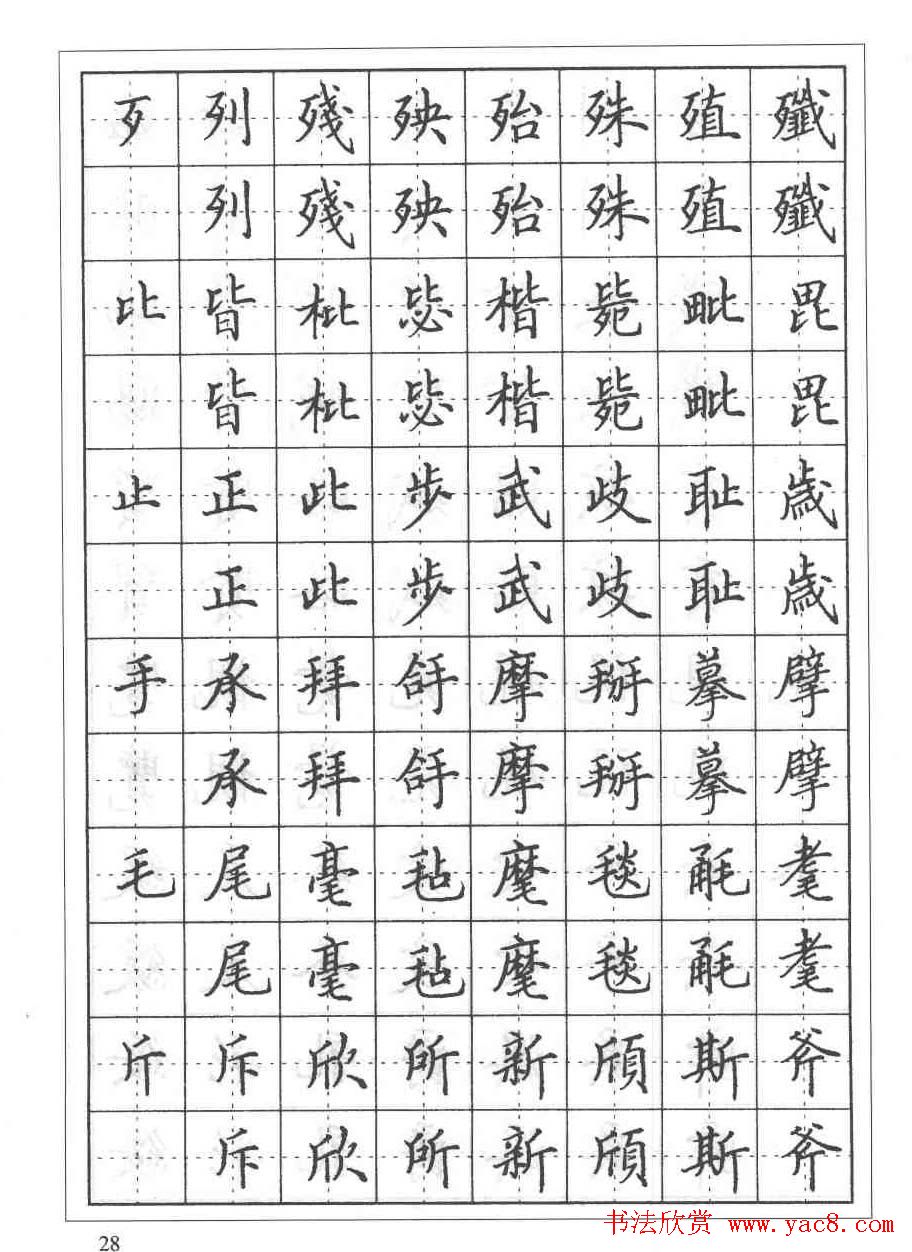 歹 列 殘 殃 殆 殊 殖 殲
列 殘 殃 殆 殊 殖 殲
比 皆 枇 毖 楷 毗 毘
皆 枇 毖 楷 毗 毘
止 正 此 步 武 歧 耻 歲
正 此 步 武 歧 耻 歲
手 承 拜 摩 掰 摹 擘
承 拜 摩 掰 摹 擘
毛 尾 毫 毡 麾 毯 耄
尾 毫 毡 麾 毯 耄
斤 斥 欣 所 新 頎 斯 斧
斥 欣 所 新 頎 斯 斧
书法欣赏 www.yac8.com
28